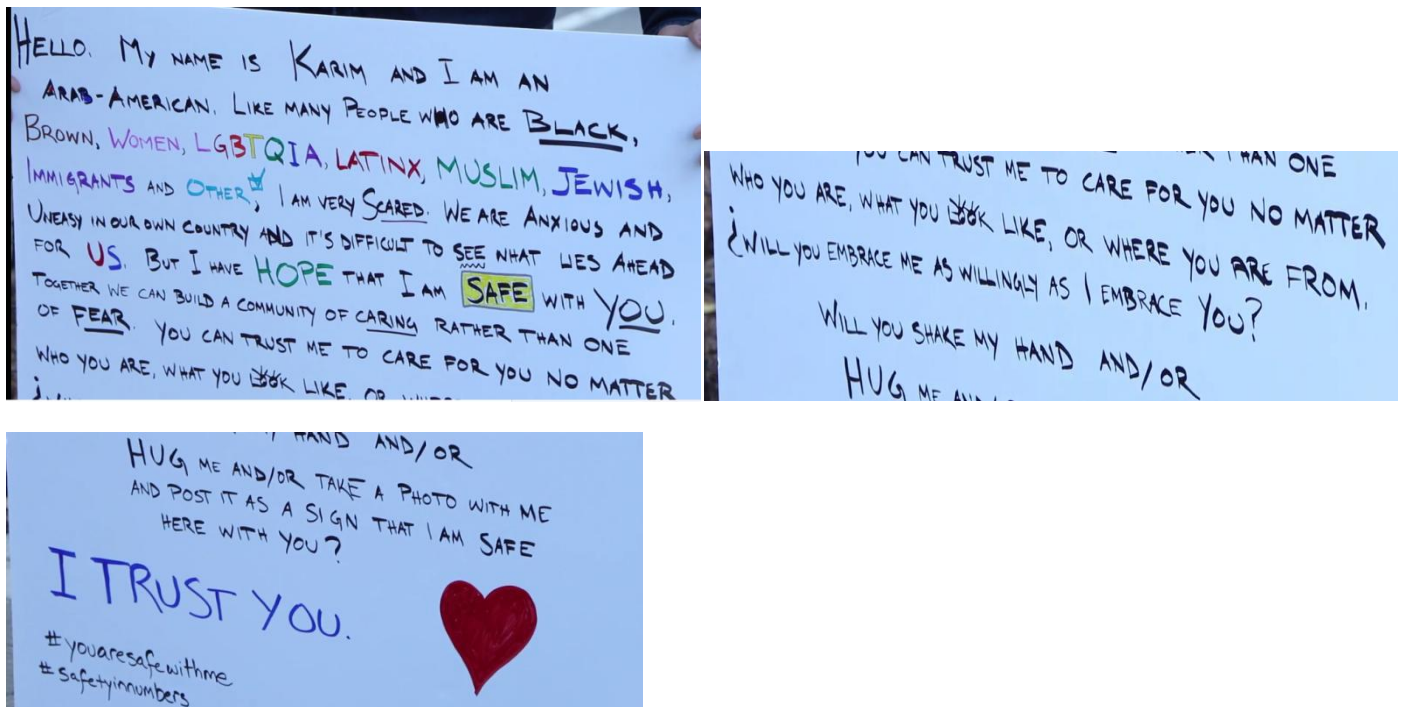 HELLO. MY NAME IS KARIM AND I AM AN
ARAB-AMERICAN. LIKE MANY PEOPLE WHO ARE BLACK,
BROWN, WOMEN, LGBTQIA, LATINX, MUSLIM, JEWISH,
IMMIGRANTS AND OTHER, I AM VERY SCARED. WE ARE ANXIOUS AND
UNEASY IN OUR OWN COUNTRY AND IT'S DIFFICULT TO SEE WHAT LIES AHEAD
FOR US. BUT I HAVE HOPE THAT I AM SAFE WITH YOU.
TOGETHER WE CAN BUILD A COMMUNITY OF CARING RATHER THAN ONE
OF FEAR. YOU CAN TRUST ME TO CARE FOR YOU NO MATTER
WHO YOU ARE, WHAT YOU LOOK LIKE, OR
THAN ONE
YOU CAN TRUST ME TO CARE FOR YOU NO MATTER
WHO YOU ARE, WHAT YOU LOOK LIKE, OR WHERE YOU ARE FROM.
¿WILL YOU EMBRACE ME AS WILLINGLY AS I EMBRACE YOU?
WILL YOU SHAKE MY HAND AND/OR
HUG ME
HAND AND/OR
HUG ME AND/OR TAKE A PHOTO WITH ME
AND POST IT AS A SIGN THAT I AM SAFE
HERE WITH YOU?
I TRUST YOU.
#youaresafewithme
#safetyinnumbers